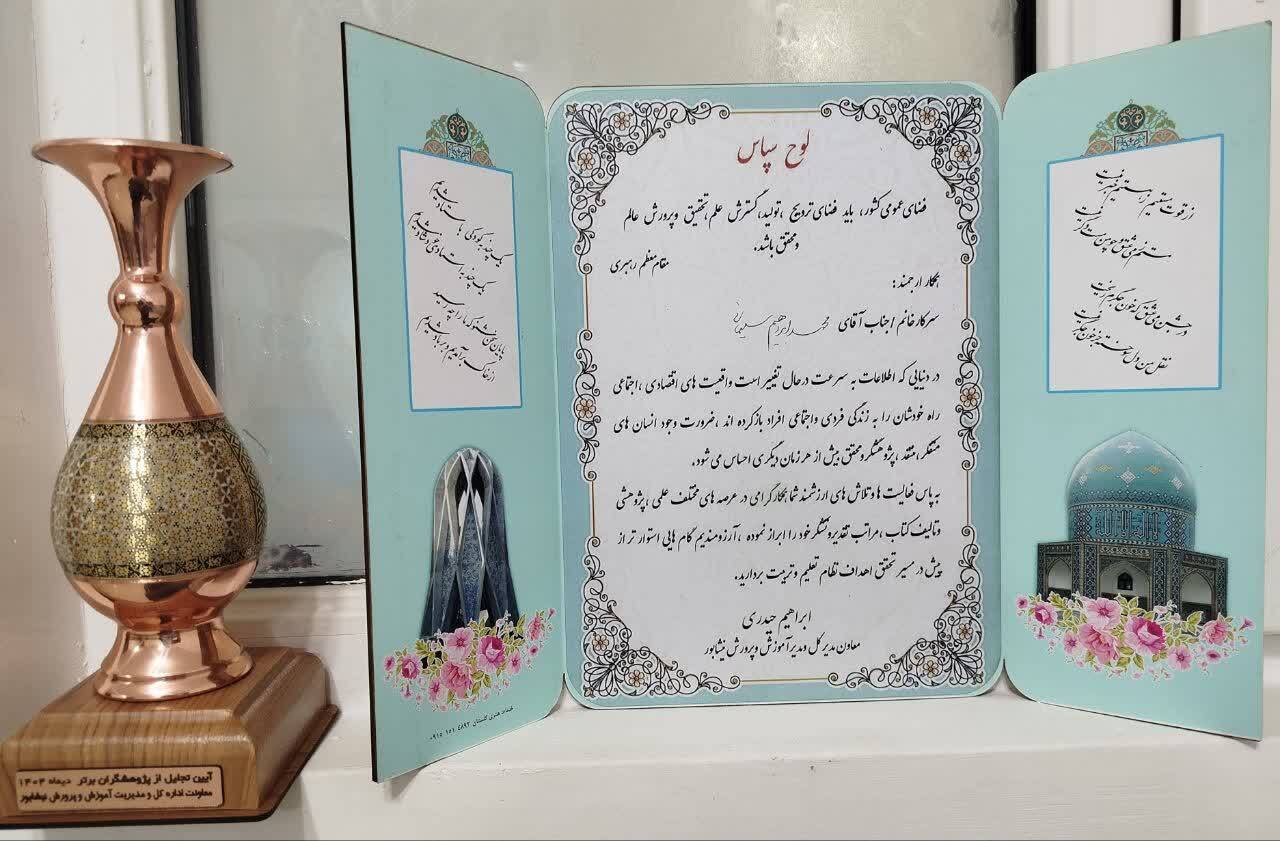 لوح سپاس
فضای عمومی کشور، باید فضای ترویج ،تولید، گسترش علم، تحقیق وپرورش عالم
ومحقق باشد.
مقام معظم رهبری
همکار ارجمند :
سرکارخانم / جناب آقای محمد ابراهیم سلیمانی
در دنیایی که اطلاعات به سرعت درحال تغییر است واقعیت های اقتصادی ،اجتماعی
راه خودشان را به زندگی فردی واجتماعی افراد باز کرده اند ،ضرورت وجود انسان های
متفکر، منتقد ،پژوهشگرومحقق بیش از هر زمان دیگری احساس می شود.
به پاس فعالیت ها وتلاش های ارزشمند شما همکار گرامی در عرصه های مختلف علمی ،پژوهشی
وتالیف کتاب ،مراتب تقدیروتشکر خود را ابراز نموده ، آرزومندیم گام هایی استوار تر از
پیش در مسیر تحقق اهداف نظام تعلیم وتربیت بردارید.
ابراهیم حیدری
معاون مدیر کل ومدیر آموزش وپرورش نیشابور
یک چند به کودکی به استاد شدیم
یک چند به استادی خود شاد شدیم
پایان سخن شنو که ما را چه رسید
از خاک در آمدیم و بر باد شدیم
خدمات هنری گلستان ۴۸۹۲ ۱۵۱ ۰۹۱۵
آیین تجلیل از پژوهشگران برتر دیماه ۱۴۰۳
معاونت اداره کل و مدیریت آموزش و پرورش نیشابور